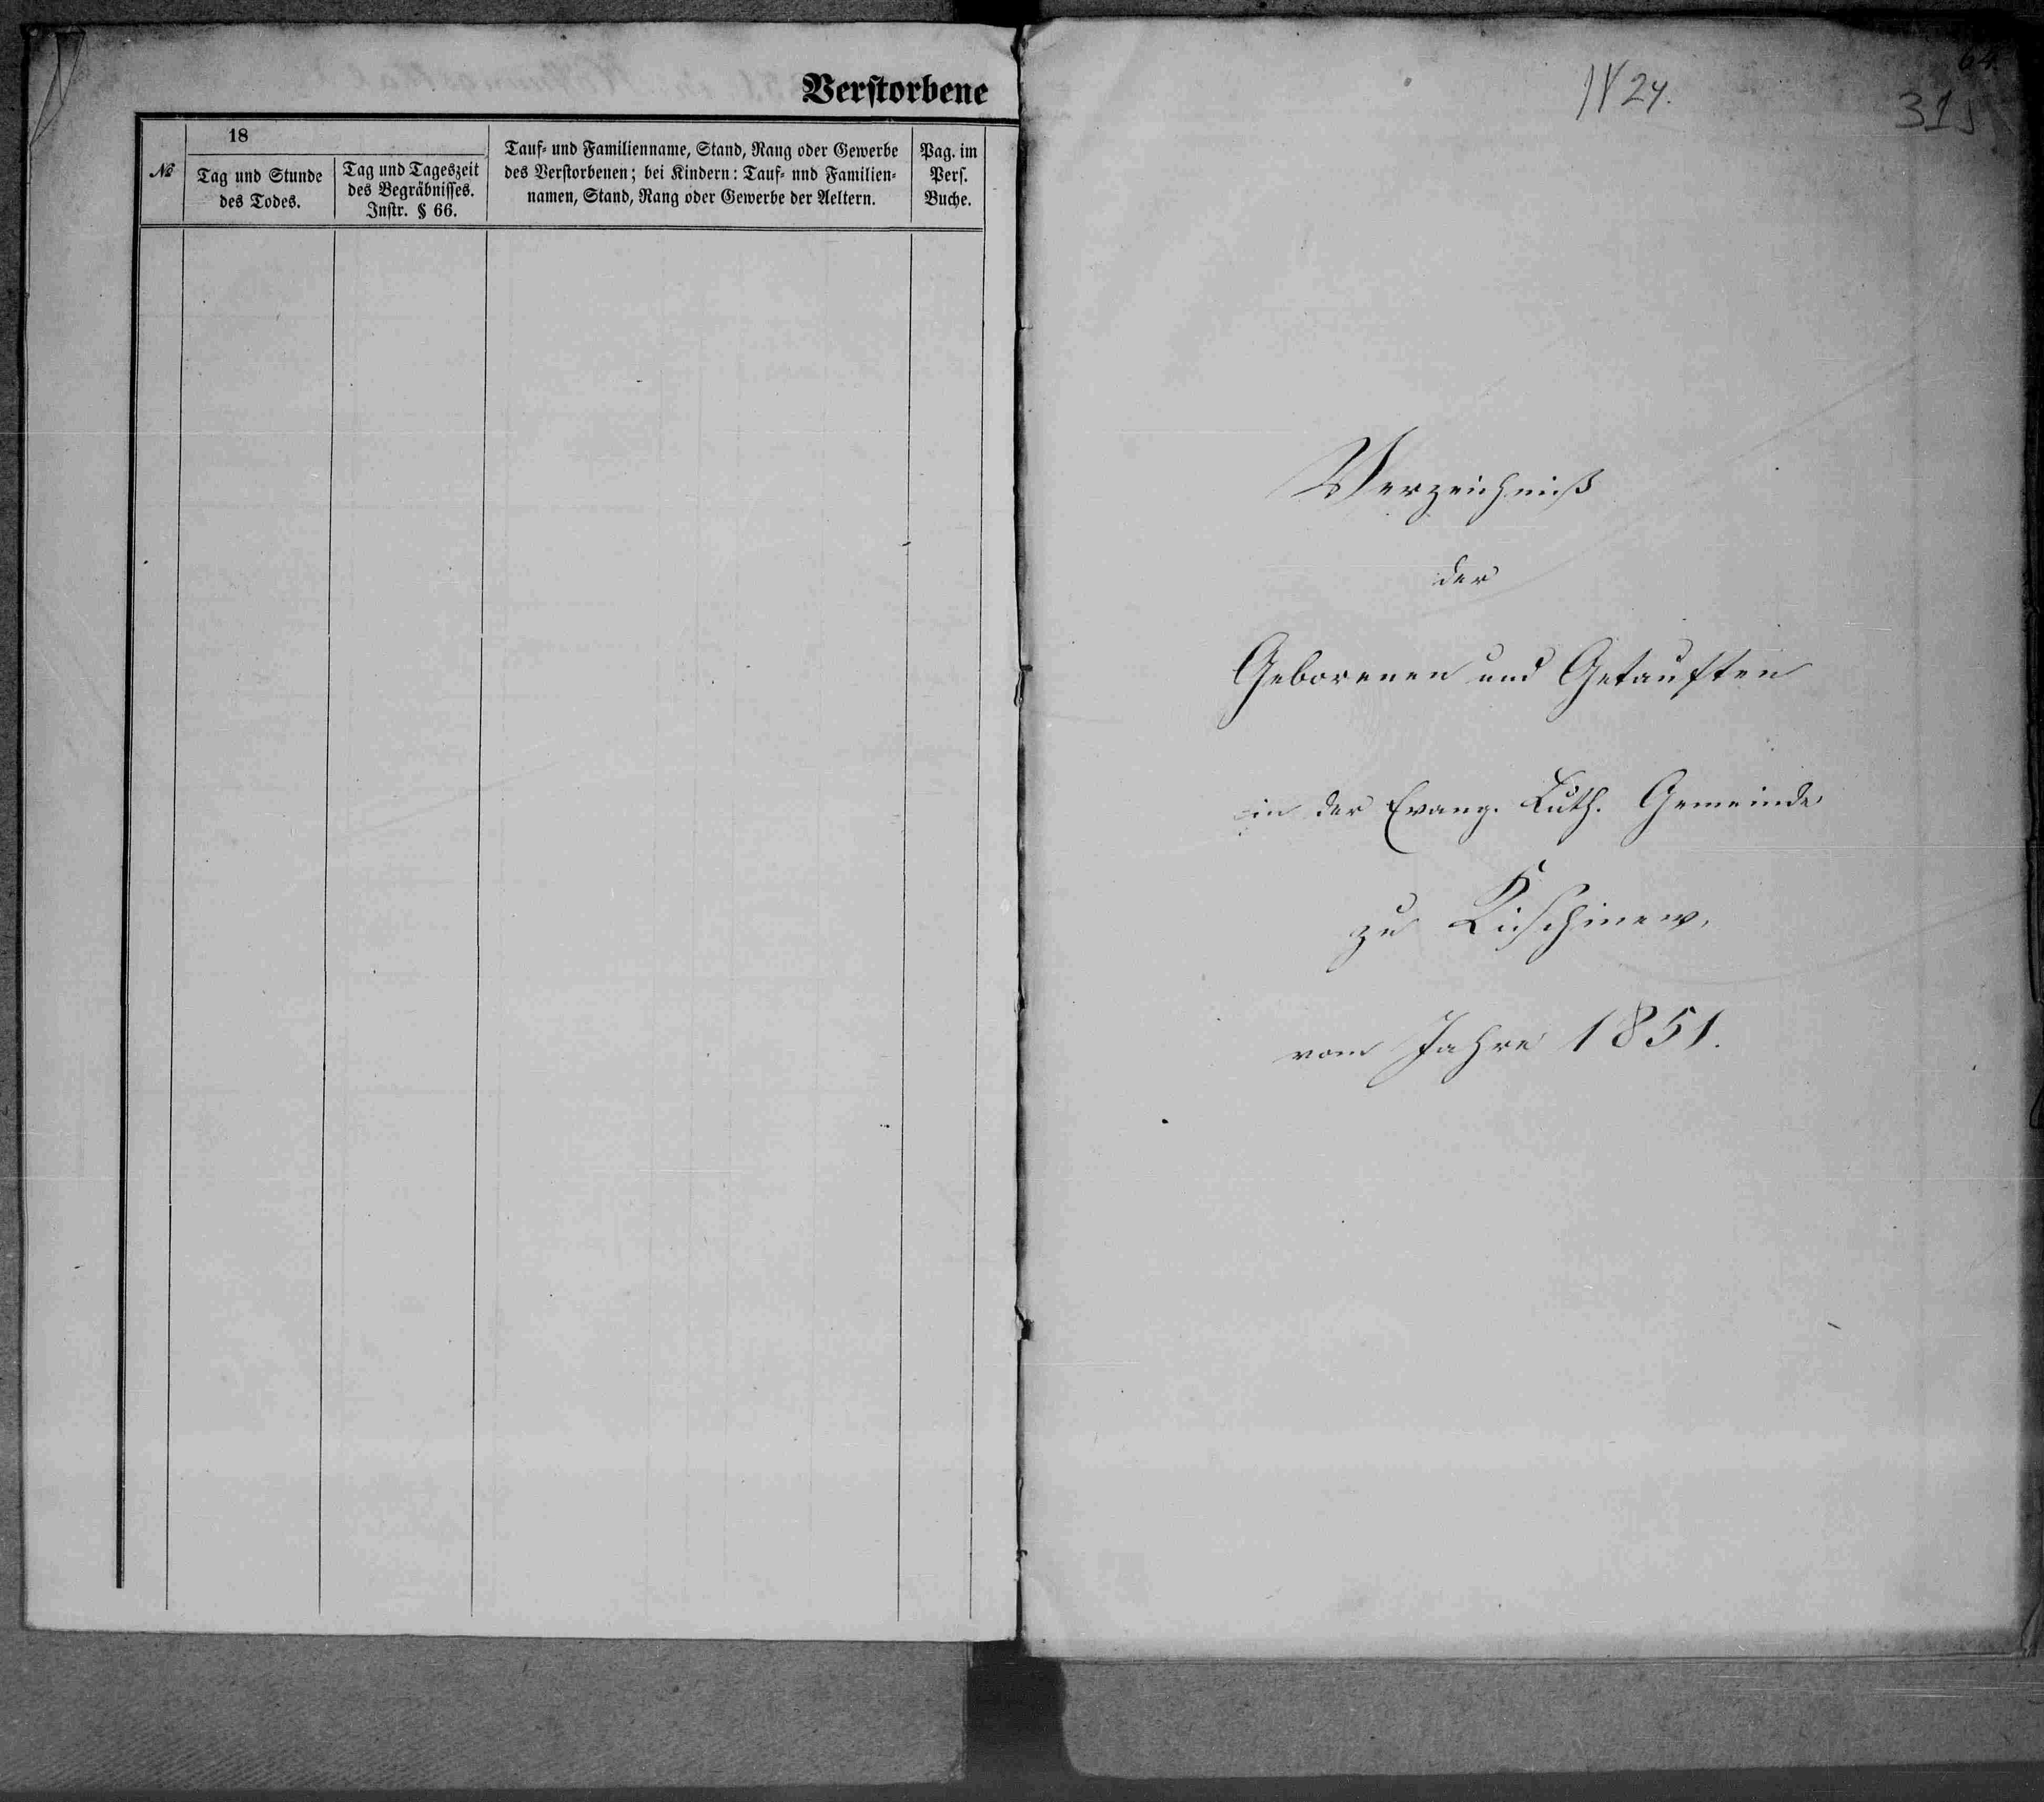 Verstorbene
18
№
Tag und Stunde
des Todes.
Tag und Tageszeit
des Begräbnisses.
Instr. § 66.
Tauf- und Familienname, Stand, Rang oder Gewerbe
des Verstorbenen; bei Kindern: Tauf- und Familien-
namen, Stand, Rang oder Gewerbe der Aeltern.
Pag. im
Pers.
Buche.
64.
24.
Verzeichniß
der
Geborenen und Getauften
in der Evang. Luth. Gemeinde
zu Kischinew,
vom Jahre 1851.